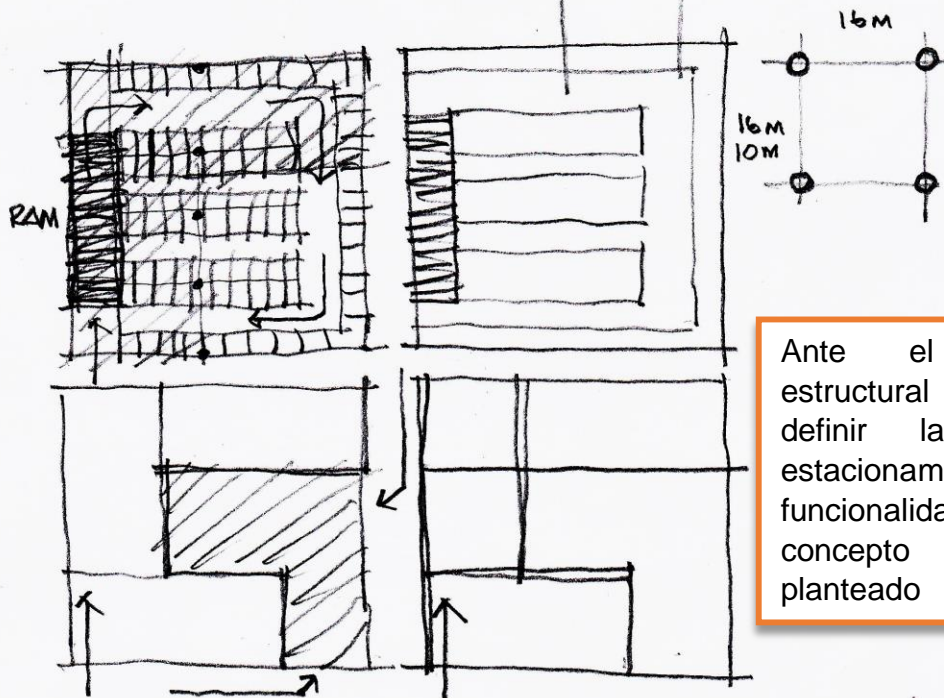 16M
16M
10M
RAM
Ante el
estructural
definir la
estacionam
funcionalida
concepto
planteado